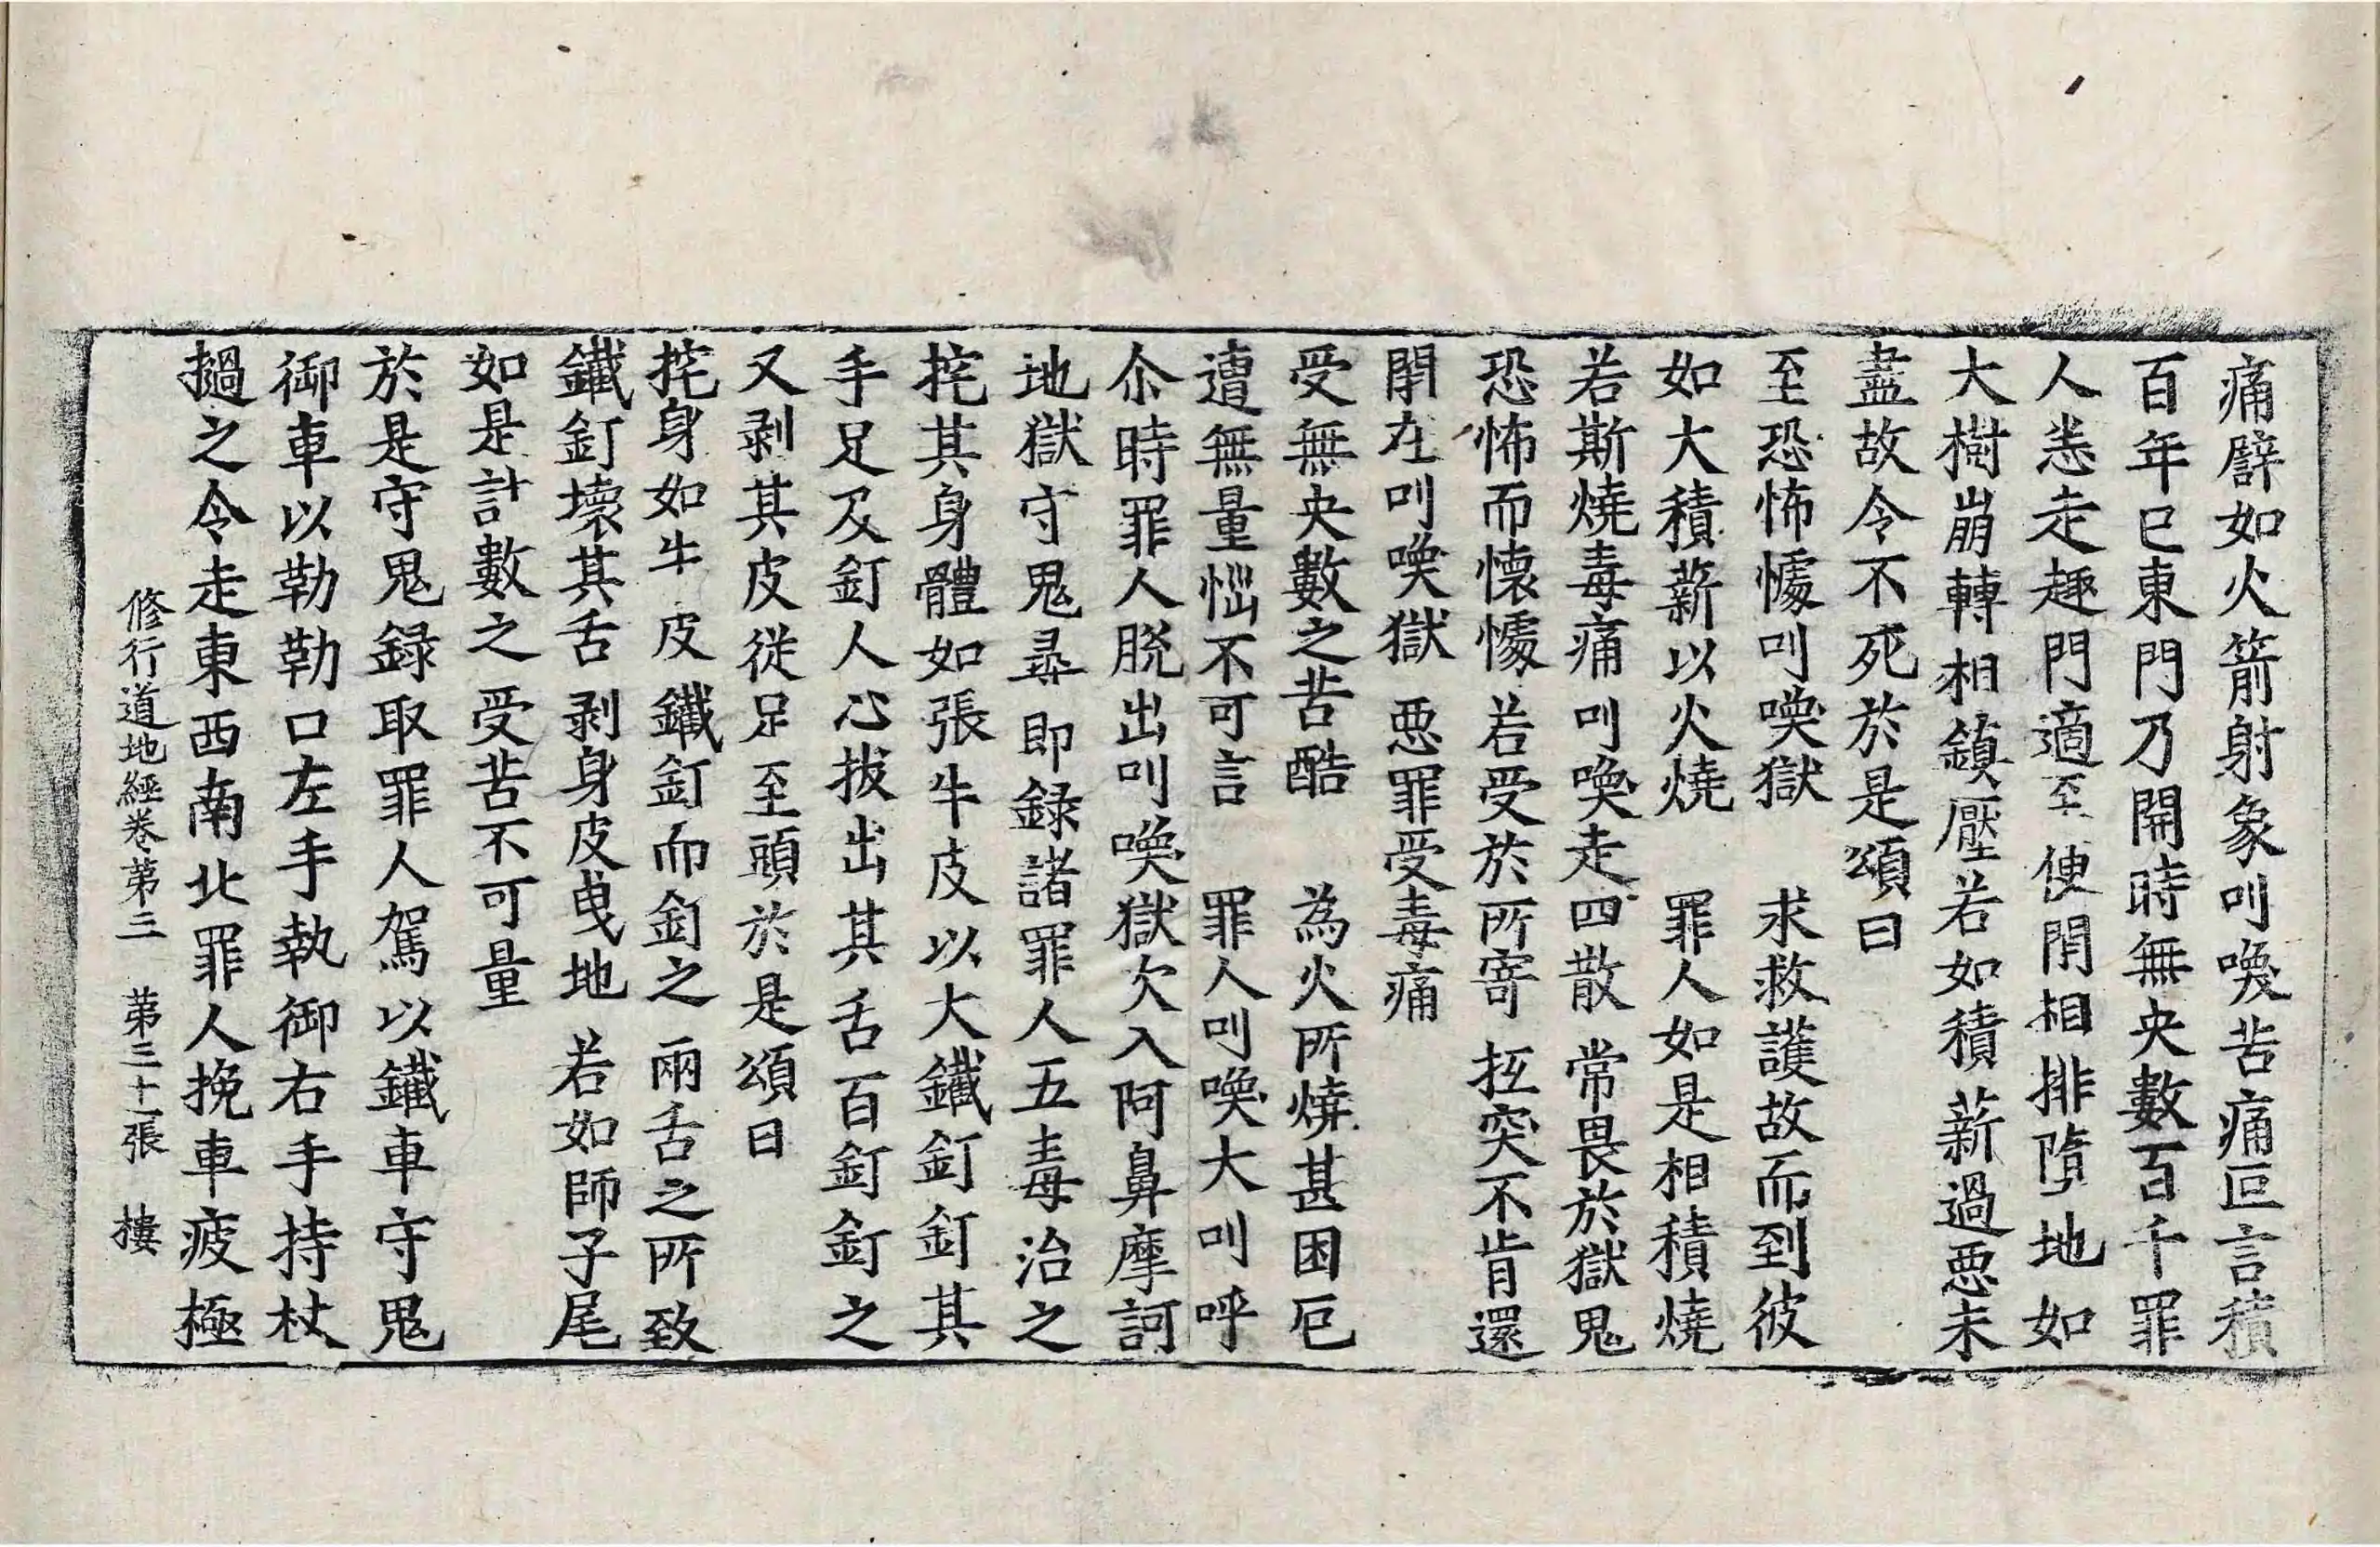 痛譬如火箭射象叫喚苦痛叵言積
百年已東門乃開時無央數百千罪
人悉走趣門適至便閇相排墮地如
大樹崩轉相鎮壓若如積薪過惡未
盡故令不死於是頌曰
至恐怖懅叫喚獄　求救護故而到彼
如大積薪以火燒　罪人如是相積燒
若斯燒毒痛叫喚走四散　常畏於獄鬼
恐怖而懷懅　若受於所寄　抂突不肯還
閇在叫喚獄　惡罪受毒痛
受無央數之苦酷　為火所燒甚困厄
遭無量惱不可言　罪人叫喚大叫呼
尒時罪人脫出叫喚獄次入阿鼻摩訶
地獄守鬼尋即録諸罪人五毒治之
挓其身體如張牛皮以大鐵釘釘其
手足及釘人心拔出其舌百釘釘之
又剥其皮從足至頭於是頌曰
挓身如牛皮　鐵釘而釘之　兩舌之所致
鐵釘壞其舌　剥身皮曳地　若如師子尾
如是計數之　受苦不可量
於是守鬼録取罪人駕以鐵車守鬼
御車以勒勒口左手執御右手持杖
撾之令走東西南北罪人挽車疲極
修行道地經卷第三　第三十二張　樓